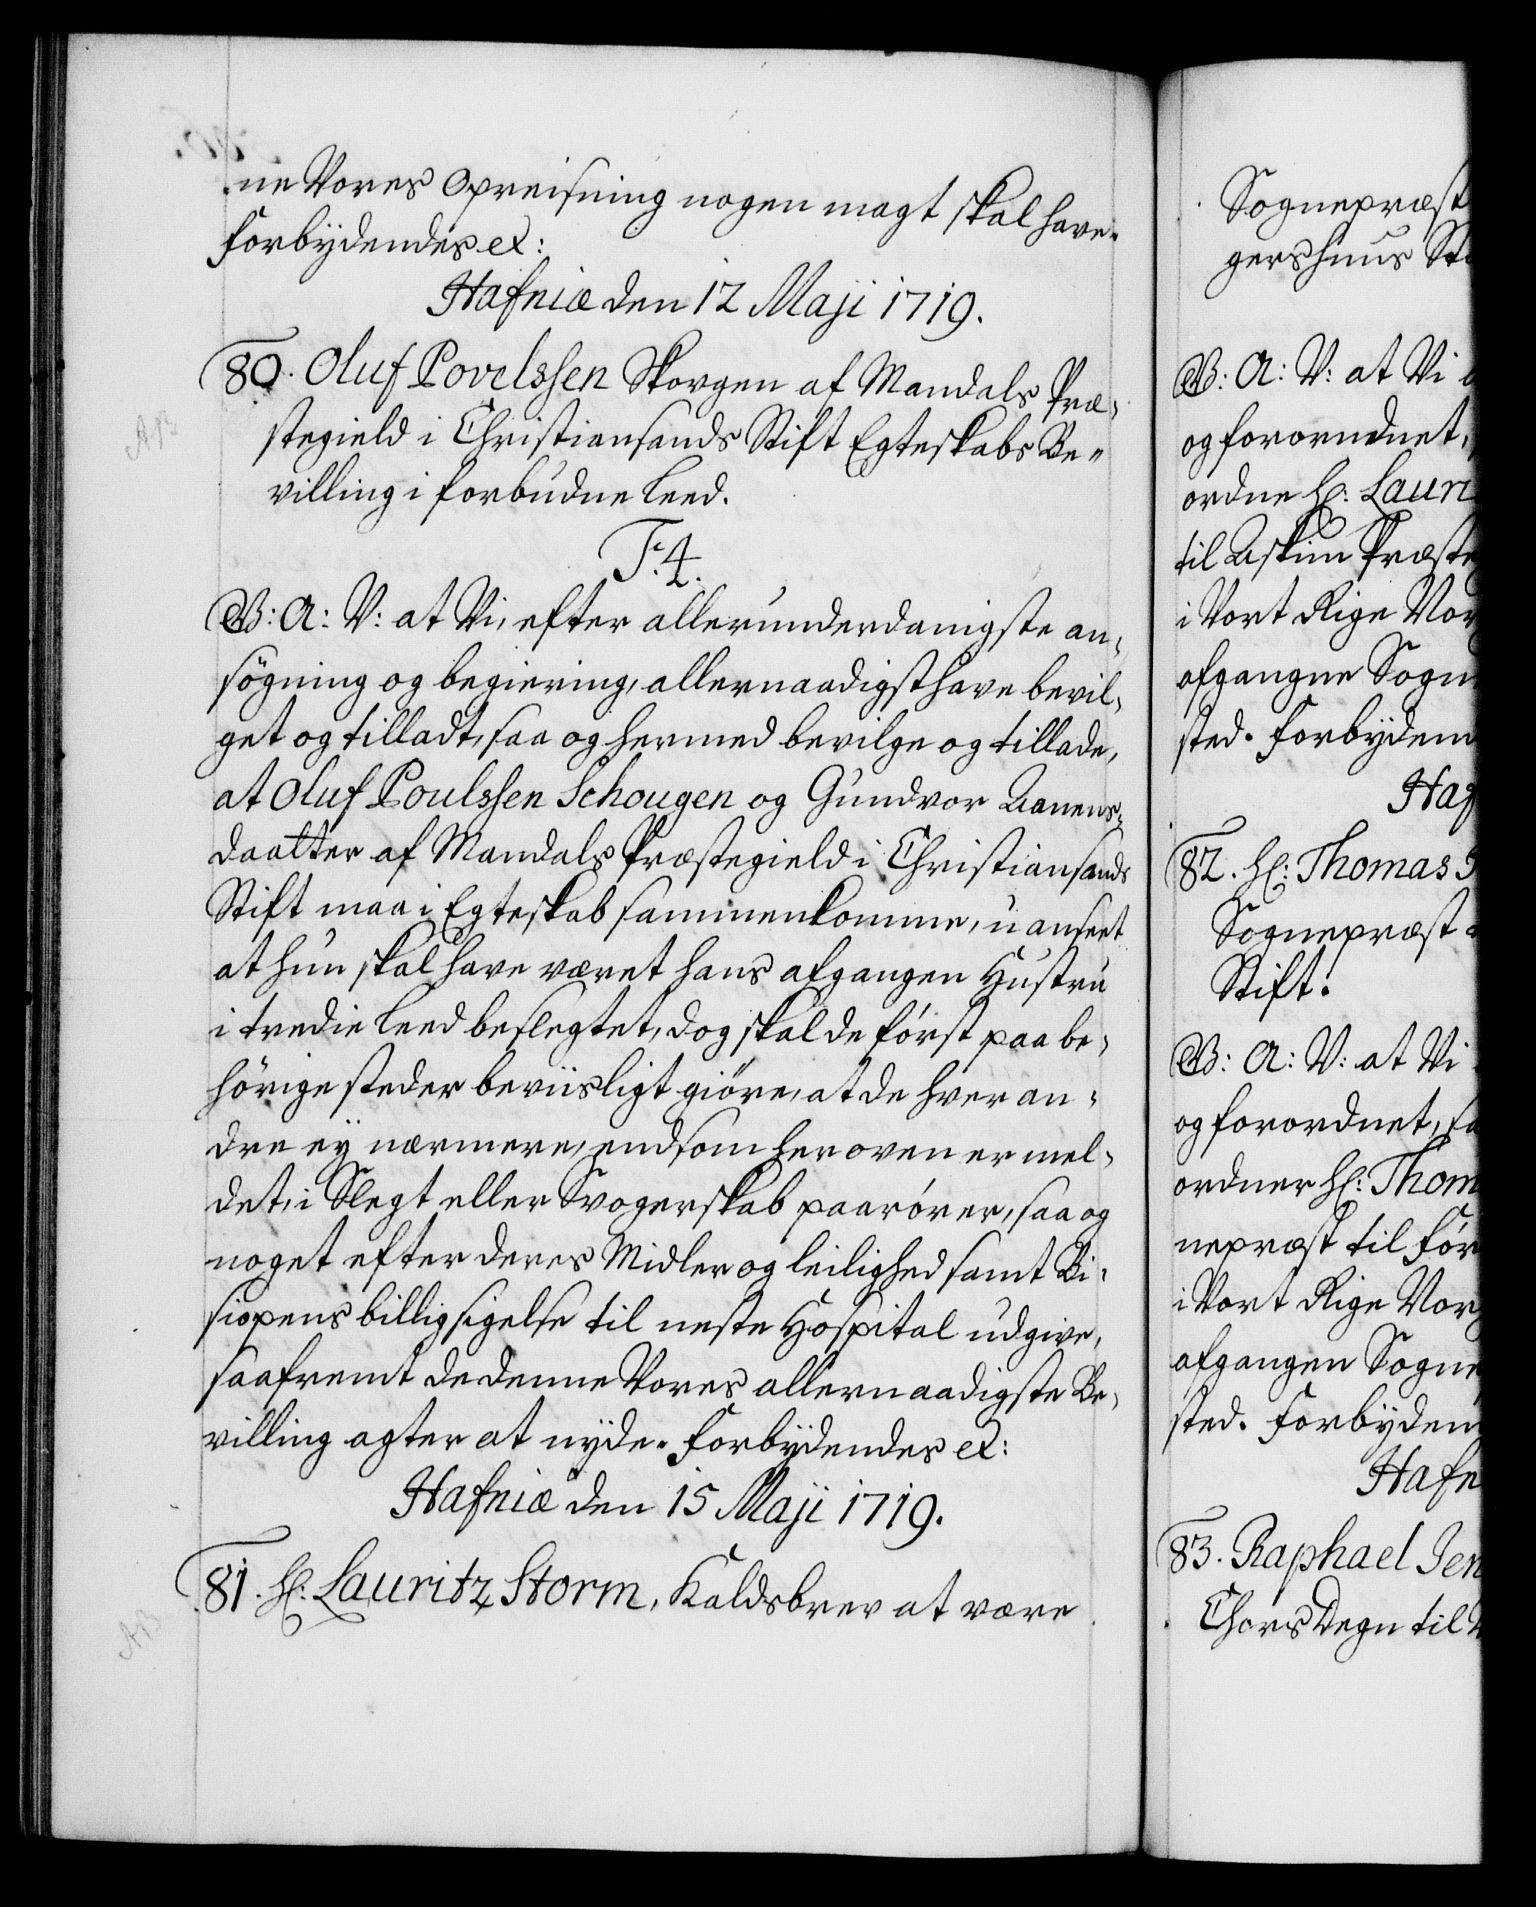 ne Vores Opreisning nogen magt skal have.
Forbydendes etc:
Hafniæ den 12 Maji 1719.
80. Oluf Povelssen Skovgen af Mandals Præ,
stegield i Christiansands Stift Egteskabs Be,,
villing i forbudne leed.
F: 4.
G: A: V: at Vi, efter allerunderdanigste an,
søgning og begiering, allernaadigst have bevil,
get og tilladt, saa og hermed bevilge og tillade,
at Oluf Poulssen Schougen og Gundvor Aanens,
daatter af Mandals Præstegield i Christiansands
Stift maa i Egteskab sammenkomme, uanseet
at hun skal have været hans afgangen Hustru
i tredie leed beslegtet, dog skal de først paa be,
hørige steder beviisligt giøre, at de hver an,
dre ey nærmere, end som her oven er mel,
det, i Slegt eller Svogerskab paarører, saa og
noget efter deres Midler og leilighed samt Bi,
siopens billig sigelse til neste Hospital udgive,
saafremt de denne Vores allernaadigste Be,
villing agter at nyde. Forbydendes etc:
Hafniæ den 15 Maji 1719.
81. Hr: Lauritz Storm, Kaldsbrev at være
AB
AB
Sognepræst
gershuus St
G: A: V: at Vi
og forordnet,
ordne Hr: Lauri
til Askim Præste
i Vort Rige Nor
afgangne Sogn
sted. Forbyden
Haf
82. Hr: Thomas
Sognepræst
Stift.
G: A: V: at Vi
og forordnet, sa
ordner Hr: Thom
nepræst til Før
i Vort Rige Nor
afgangen Sogne
sted. Forbyden
Hafn
83. Raphael Jen
Chors Degn til